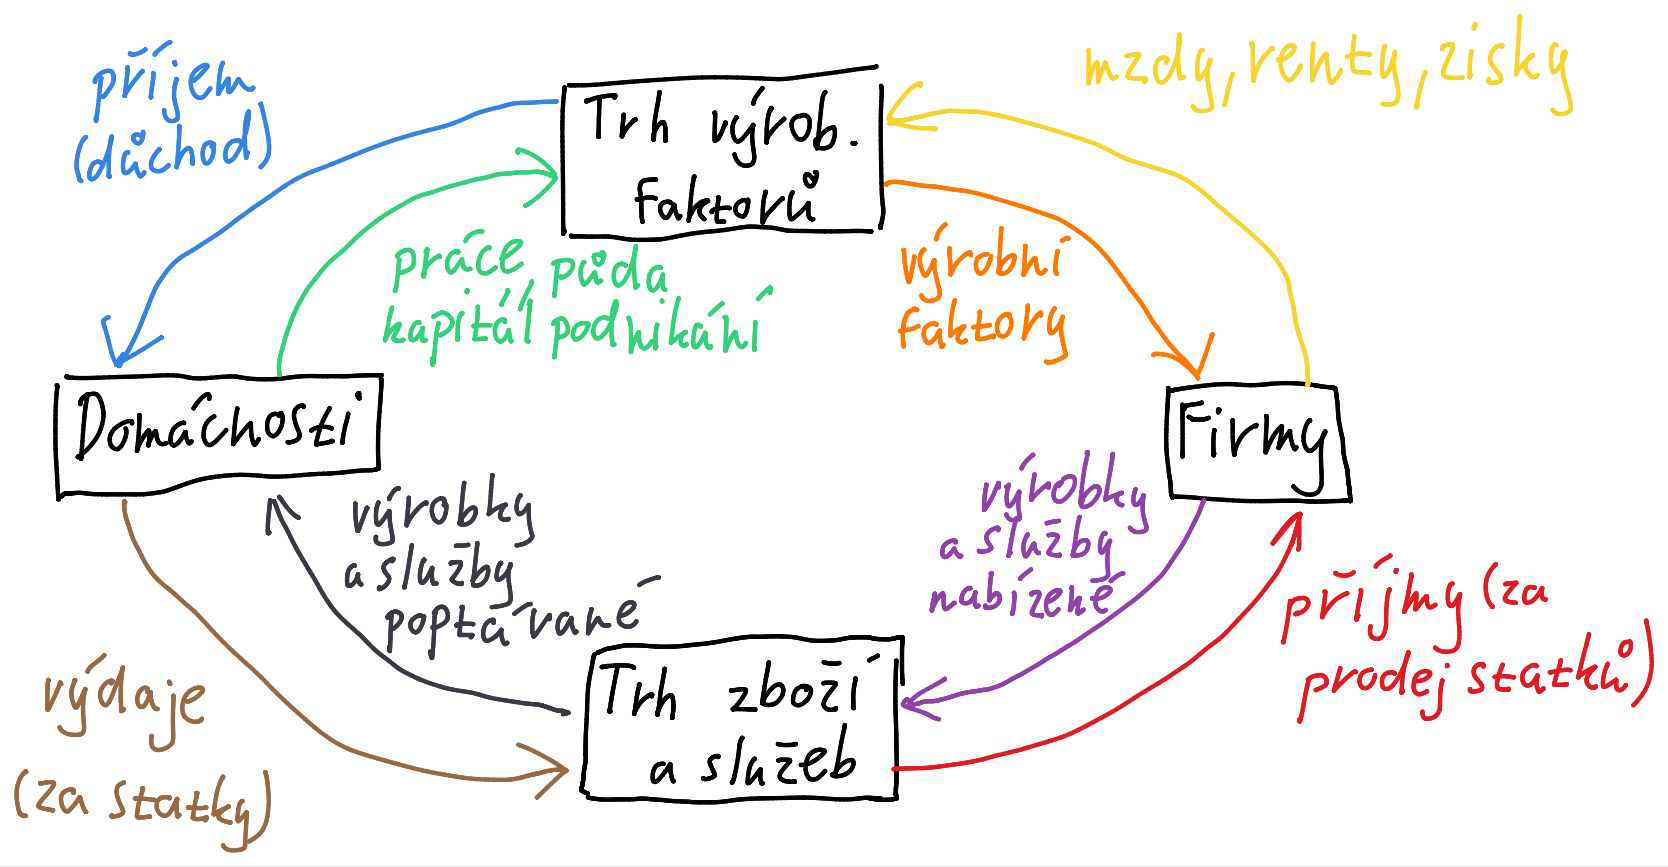 příjem
(důchod)
Trh výrob.
faktorů
mzdy, renty, zisky
práce, půda
kapitál podnikání
výrobní
faktory
Domácnosti
Firmy
výrobky
a služby
poptávané
výrobky
a služby
nabízené
výdaje
(za statky)
Trh zboží
a služeb
příjmy (za
prodej statků)